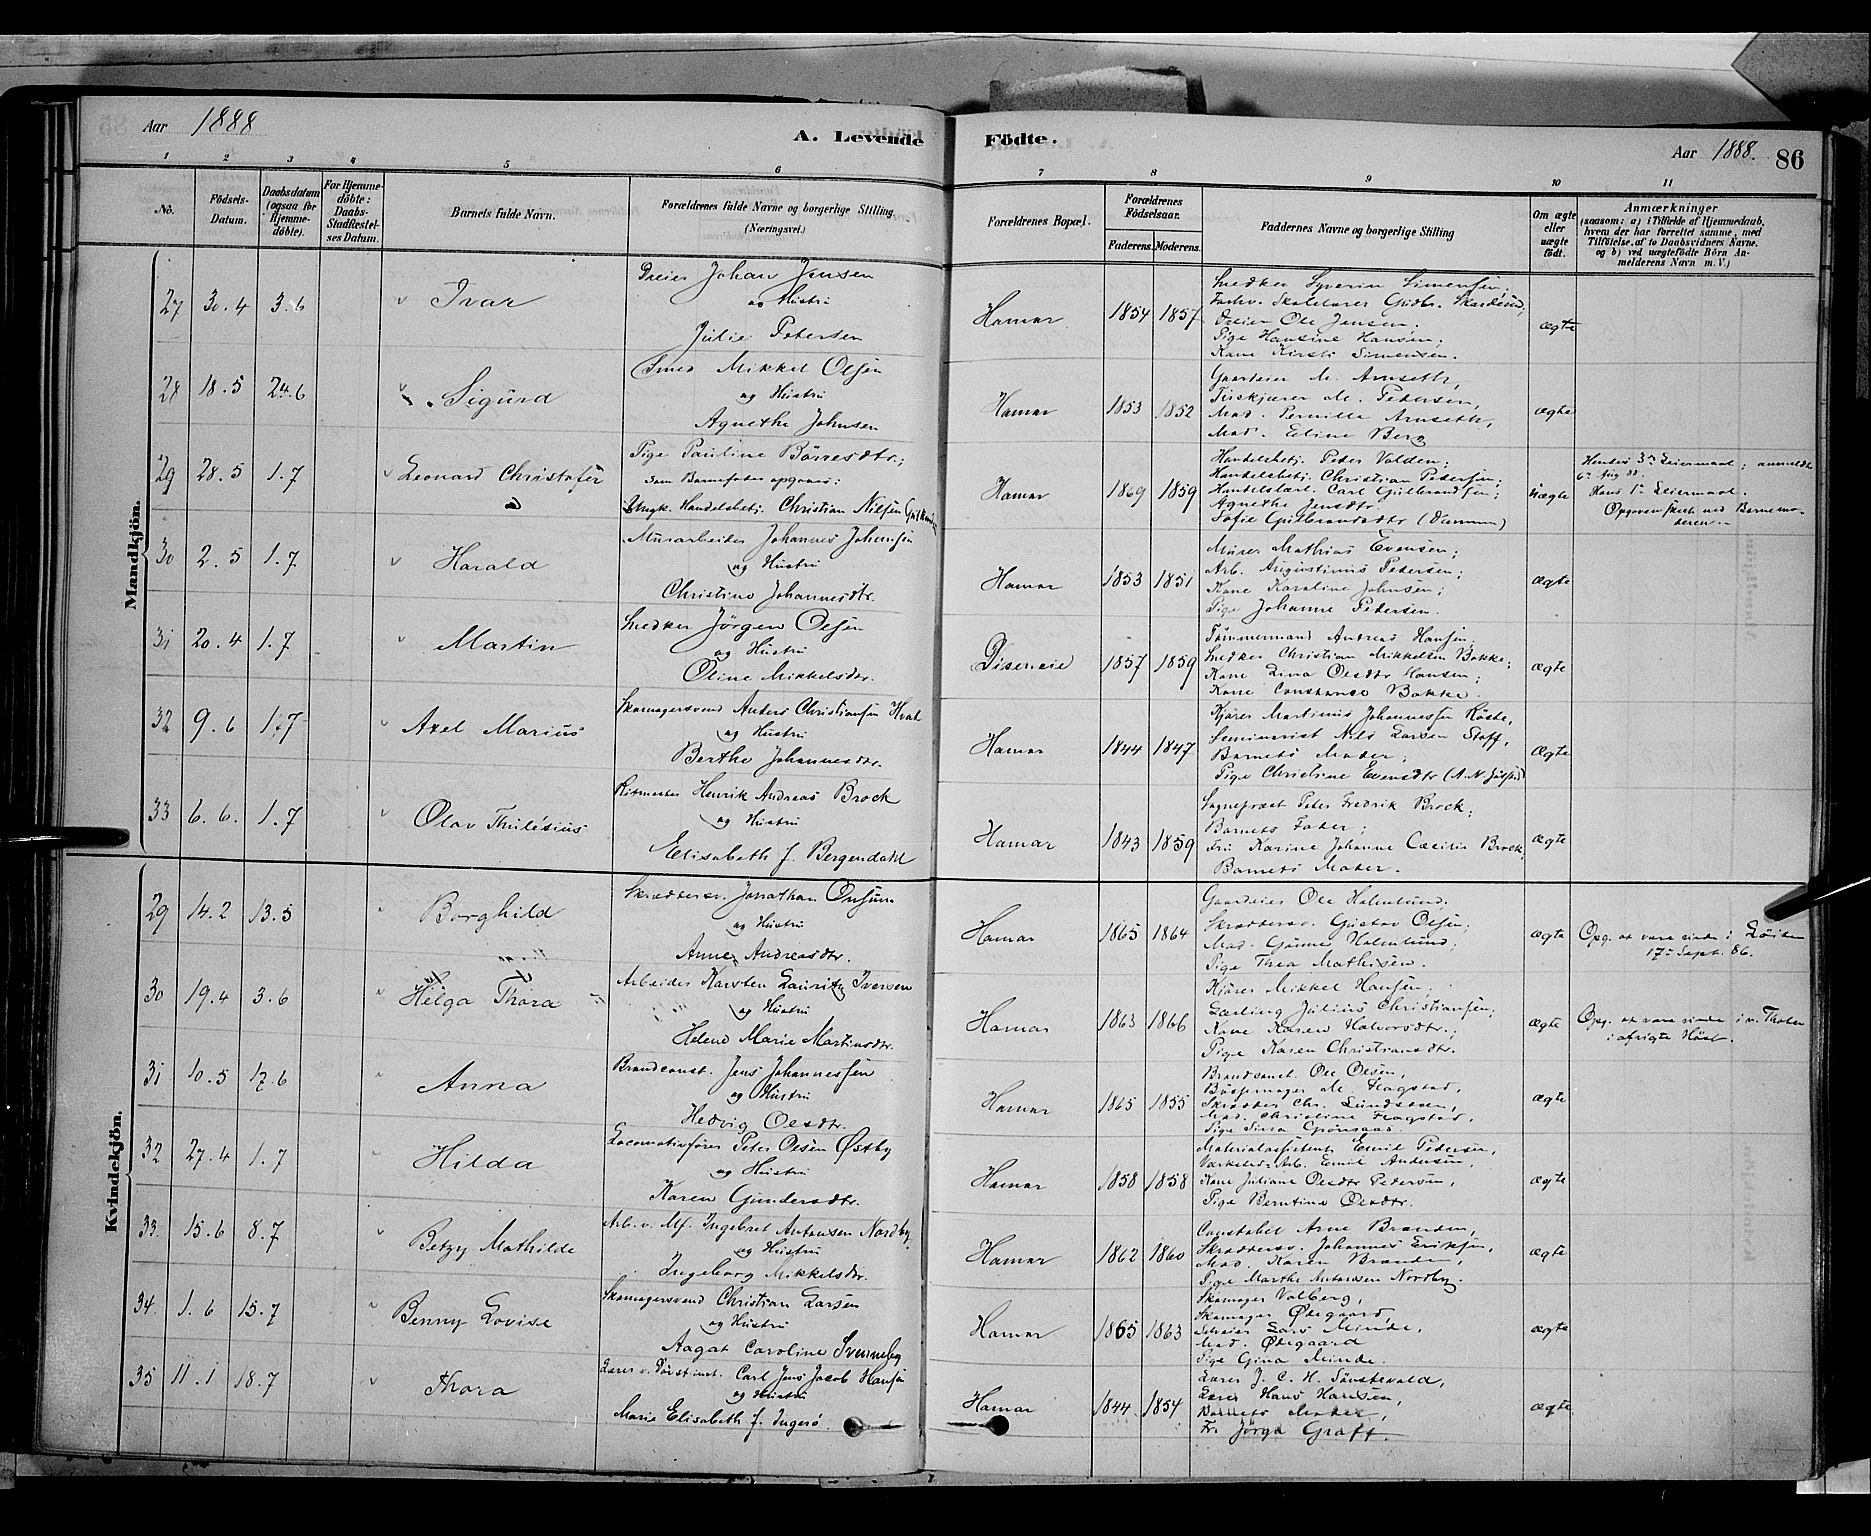 Aar 1888
A. Levende
Födte.
Aar 1888. 86
1 2 3 4 5 6 7 8 9 10 11
No.
Födsels-Datum.
Daabsdatum (ogsaa for Hjemmedöbte).
For Hjemmedöbte: Daabs-Stadfæstelses Datum.
Barnets fulde Navn.
Forældrenes fulde Navne og borgerlige Stilling (Næringsvei.)
Forældrenes Bopæl.
Forældrenes Födselsaar.
Faderens. Moderens.
Faddernes Navne og borgerlige Stilling
Om ægte eller uægte födt.
Anmærkninger
(saasom: a) i Tilfælde af Hjemmedaab, hvem der har forrettet samme, med Tilföielse af to Daabsvidners Navne, og b) ved uægtefödte Börn Anmelderens Navn m. V.)
Mandkjön.
27 30.4 3.6 Ivar
Dreier Johan Jensen
og Hustru
Julie Petersen
Hamar 1854 1857
Snedker Syverin Simensen;
Dreier Ole Jensen.
Pige Hansine Hansen;
Kone Kirsti Simensen.
ægte
28 18.5 24.6 Sigurd
Smed Mikkel Olsen
og Hustru
Agnethe Johnsen
Hamar 1853 1852
Gaardeier M. Arnseth,
M. Pedersen,
Mad. Pernille Arnseth,
Mad. Eline Berg
ægte
29 28.5 1.7 Leonard Christofer
Pige Pauline Börresdtr.;
som Barnefader opgaves:
Ungk. Handelsbetj. Christian Nilsen
Hamar 1869 1859
Handelsbetj. Peter Volden;
Handelsbetj. Christian Petersen;
Handelslærl. Carl Gulbrandsen;
Agnethe Jensdtr
Sofie Gulbrandsdtr
uægte
Hendes 3die Leiermaal; anmeldt
6te Aug 88
Hans 1ste Leiermaal.
Opgaven skeet ved Barnemo-
deren.
30 2.5 1.7 Harald
Murarbeider Johannes Johansen
og Hustru
Christine Johannesdtr.
Hamar 1853 1851
Murer Mathias Evensen;
Arb. Augustinus Petersen;
Kone Karoline Johnsen;
Pige Johanne Petersen.
ægte
31 20.4 1.7 Martin
Snedker Jörgen Olsen
og Hustru
Oline Mikkelsdtr.
Diseneie 1857 1859
Tömmermand Andreas Hansen;
Snedker Christian Mikkelsen Bakke;
Kone Lina Olsdtr Hansen;
Kone Constance Bakke.
ægte
32 9.6 1.7 Axel Marius
Skomagersvend Anders Christiansen
og Hustru
Berthe Johannesdtr.
Hamar 1844 1847
Kjörer Martinus Johannessen Röste,
Seminarist Nils Larsen Stoff,
Barnets Moder;
Pige Christine Evensdtr
ægte
33 6.6. 1.7 Olav Thulesius
Ritmester Henrik Andreas Brock
og Hustru
Elisabeth f. Bergendahl
Hamar 1843 1859
Sognepræst Peter Fredrik Brock;
Barnets Fader;
Fru Karine Johanne Cæcilie Brock,
Barnets Moder.
ægte
Kvindekjön.
29 14.2 13.5 Borghild
Skræddersv. Jonathan Onsum
og Hustru
Anne Andreasdtr.
Hamar 1865 1864
Gaardeier Ole Holmlund.
Skræddersv. Gustav Olsen;
Mad. Holmlund;
Pige Thea Mathisen.
ægte
Opg. at være viede i Löiten
17de Sept. 86.
30 19.4 3.6 Helga Thora
Arbeider Karsten Lauritz Iversen
og Hustru
Helene Marie Martinsdtr.
Hamar 1863 1866
Kjörer Mikkel Hansen;
Lærling Julius Christiansen;
Kone Karen Halvorsdtr.;
Pige Karen Christiansdtr.
ægte
Opg. at være viede i v. Thoten
i afvigte Höst.
31 10.5 17.6 Anna
Brandconst. Jens Johannessen
og Hustru
Hedvig Olsdtr.
Hamar 1865 1855
Brandconst. Ole Olsen,
Bössemager M. Flagstad,
Skrædder Chr. Lundsteen,
Mad. Christine Flagstad,
Pige Sina Grönaas.
ægte
32 27.4 1.7 Hilda
Locomotivförer Peter Olsen Østby
og Hustru
Karen Gundersdtr.
Hamar 1858 1858
Materialassistent Emil Pedersen,
Værksteds-Arb. Emil Andersen,
Kone Juliane Olsdtr Pedersen,
Pige Berntine Olsdtr.
ægte
33. 15.6 8.7 Betzy Mathilde
Arb. v. Mf. Ingebret Antonsen Nordby
og Hustru
Ingeborg Mikkelsdtr.
Hamar 1862 1860
Constabel Arne Branden,
Skræddersv. Johannes Eriksen,
Mad. Karen Branden,
Pige Marthe Antonsen Nordby.
ægte
34. 1.6 15.7 Benny Lovise
Skomagersvend Christian Larsen
og Hustru
Aagot Caroline Svenneby
Hamar 1865 1863
Skomager Volberg,
Skomager Ødegaard,
Lars Minde,
Mad. Ødegaard
Pige Gina Minde.
ægte
35 11.1 18.7 Thora
Lærer v. Døvstinst. Carl Jens Jacob Hansen
og Hustru
Marie Elisabeth f. Ingerö.
Hamar 1844 1854
Lærer J. C. H. Sönstevold,
Lærer Hans Hansen,
Barnets Moder,
Fr. Jörga Graff.
ægte